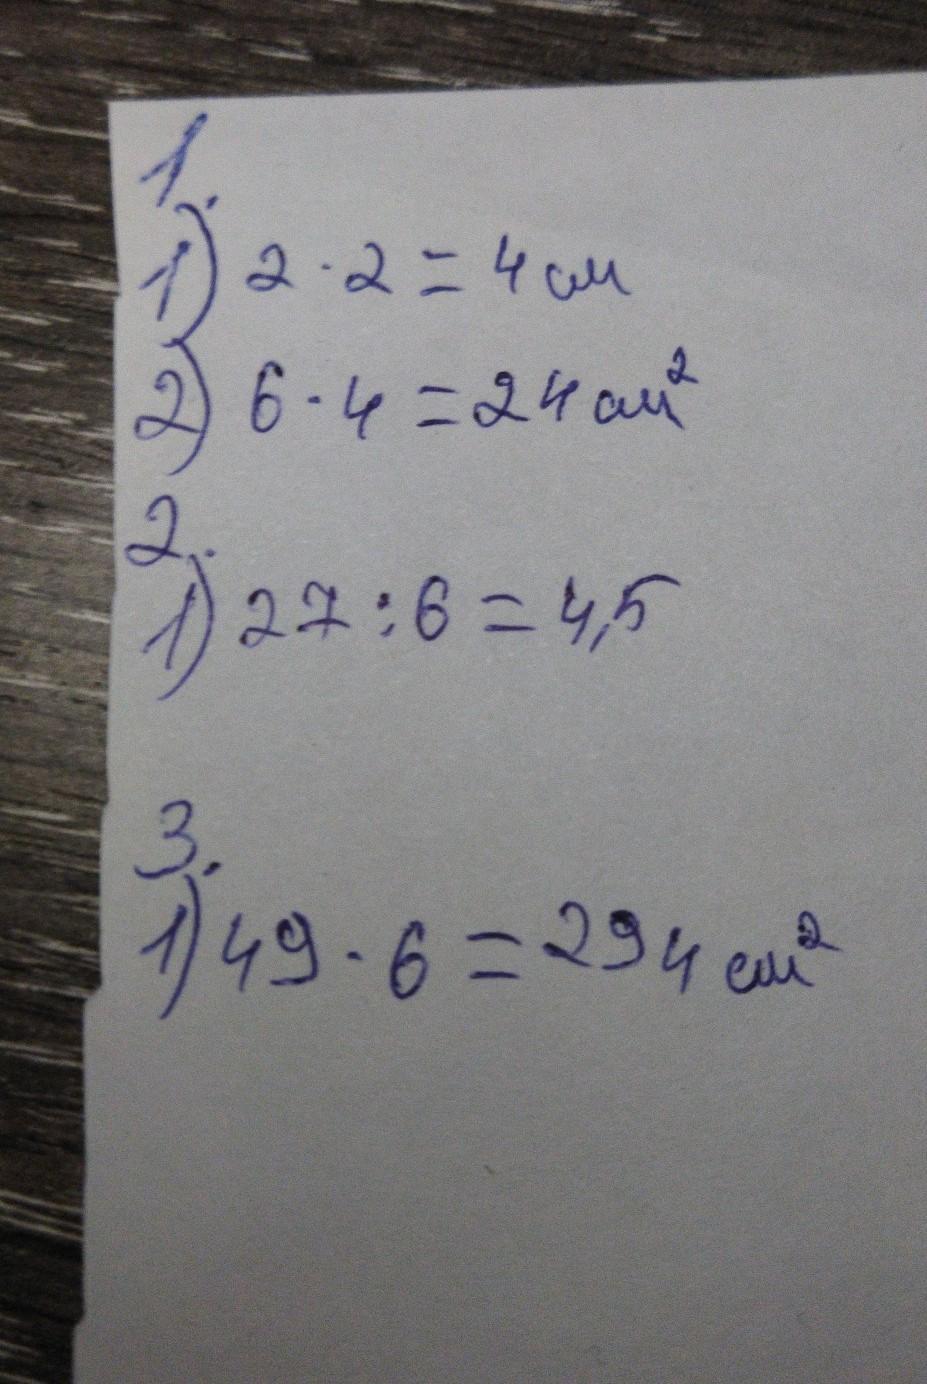 1.
1) 2 · 2 = 4 см
2) 6 · 4 = 24 см²
2.
1) 27 : 6 = 4,5
3.
1) 49 · 6 = 294 см²